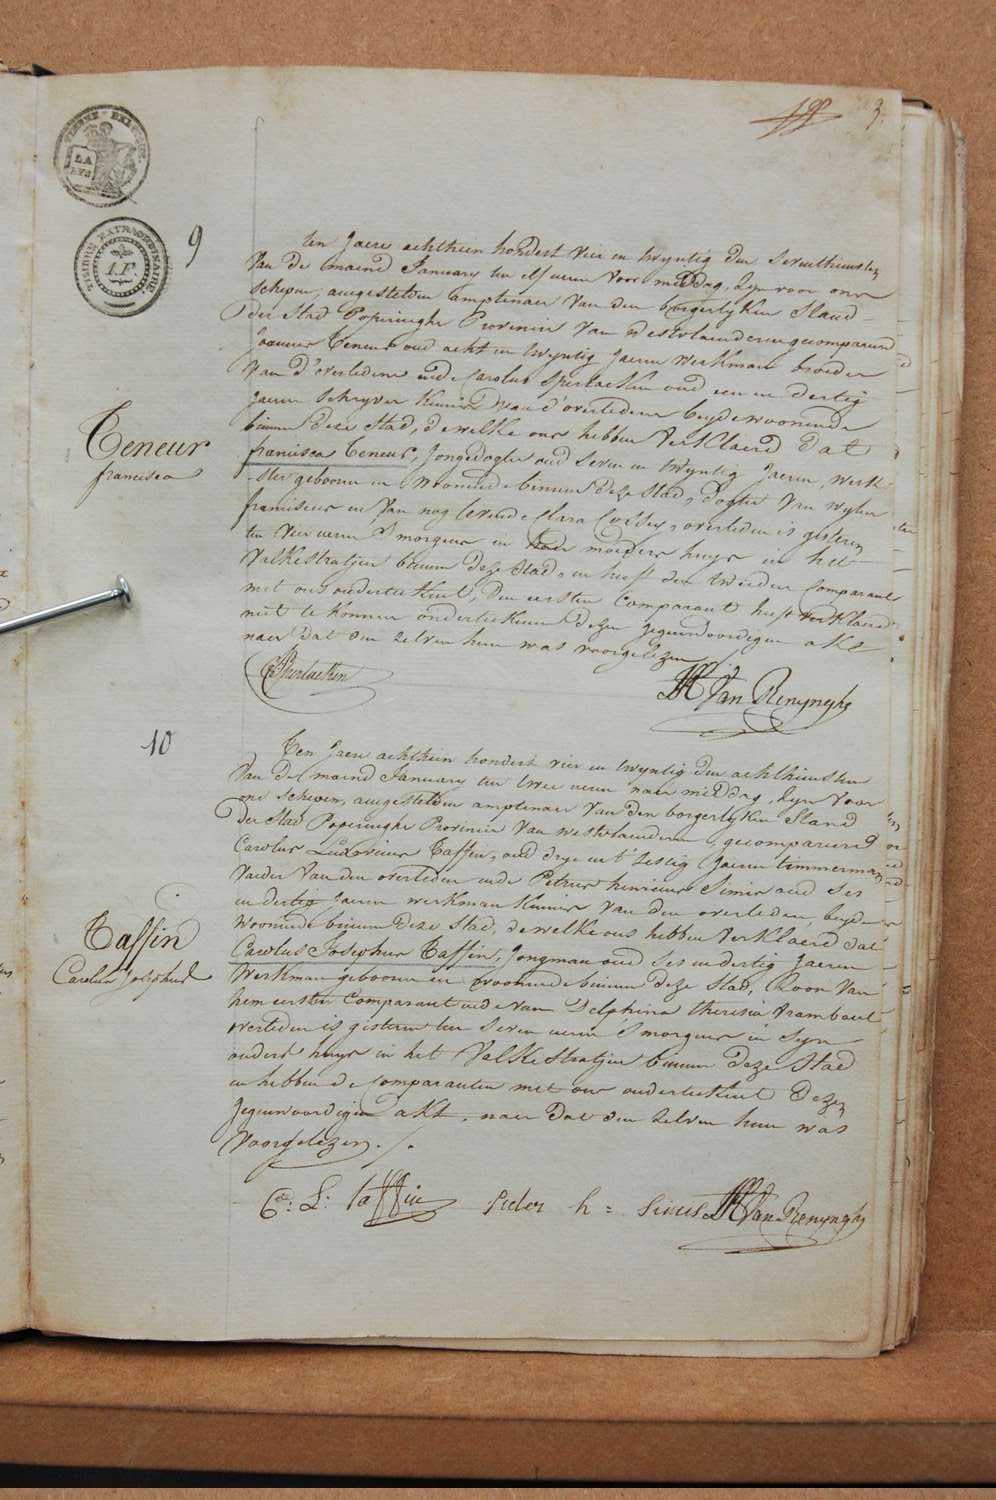 3
9
ten Jaere achthien hondert vier en twyntig den seventhiensten
Van de maend January ten elf uren voor middag, Zyn voor ons
schepen, aengestelden amptenaer Van den borgerlyken Stand
der Stad Poperinghe Provincie Van Westvlaenderen gecompareerd
Joannes Teneur oud acht en twyntig Jaeren werkman broeder
Van d'overledene ende Carolus Sperlaeken oud een en dertig
Jaeren Schryver Kennis Van d'overledene beyde woonende
binnen Deze Stad, dewelke ons hebben Verklaerd dat
Teneur
francisca
francisca Teneur, Jongedogter oud Seven en twyntig Jaeren, werk-
-ster geboren en woonende binnen deze Stad, dogter Van wylen
franciscus en Van nog levende Clara, overleden is gisteren
ten vier uren 's morgens in haer moeders huys in het
Valkestraetjen binnen deze Stad, en heeft den tweeden Comparant
met ons onderteekent, Den eersten Comparant heeft verklaerd
niet te konnen onderteekenen dezen gegenwoordigen akt
naer dat den zelven hun was voorgelezen
Van Renynghe
10
Ten Jaere achthien hondert vier en twyntig den achthiensten
Van de maend January ten twee uren naer middag, Zyn voor
ons schepen, aengestelden amptenaer Van den borgerlyken Stand
Der Stad Poperinghe Provincie Van Westvlaenderen, gecompareerd
Carolus Ludovicus Taffin, oud drye en t'sestig Jaeren timmerman
Vader Van den overleden ende Petrus henricus Simis oud ses
en dertig Jaeren werkman Kennis Van den overleden, beyde
woonende binnen Deze Stad, dewelke ons hebben Verklaerd dat
Taffin
Carolus Josephus
Carolus Josephus Taffin, Jongman oud ses en dertig Jaeren
Werkman geboren en woonende binnen deze Stad, Zoon Van
hem eersten Comparant ende van Delphina theresia Vrambout
overleden is gisteren ten seven uren 's morgens in Syn
ouders huys in het Valkestraetjen binnen Deze Stad
en hebben de Comparanten met ons onderteekent Dezen
Jegenwoordigen akt, naer dat den zelven hun was
Voorgelezen./.
C: L: taffin Pieter h= Simis Van Renynghe